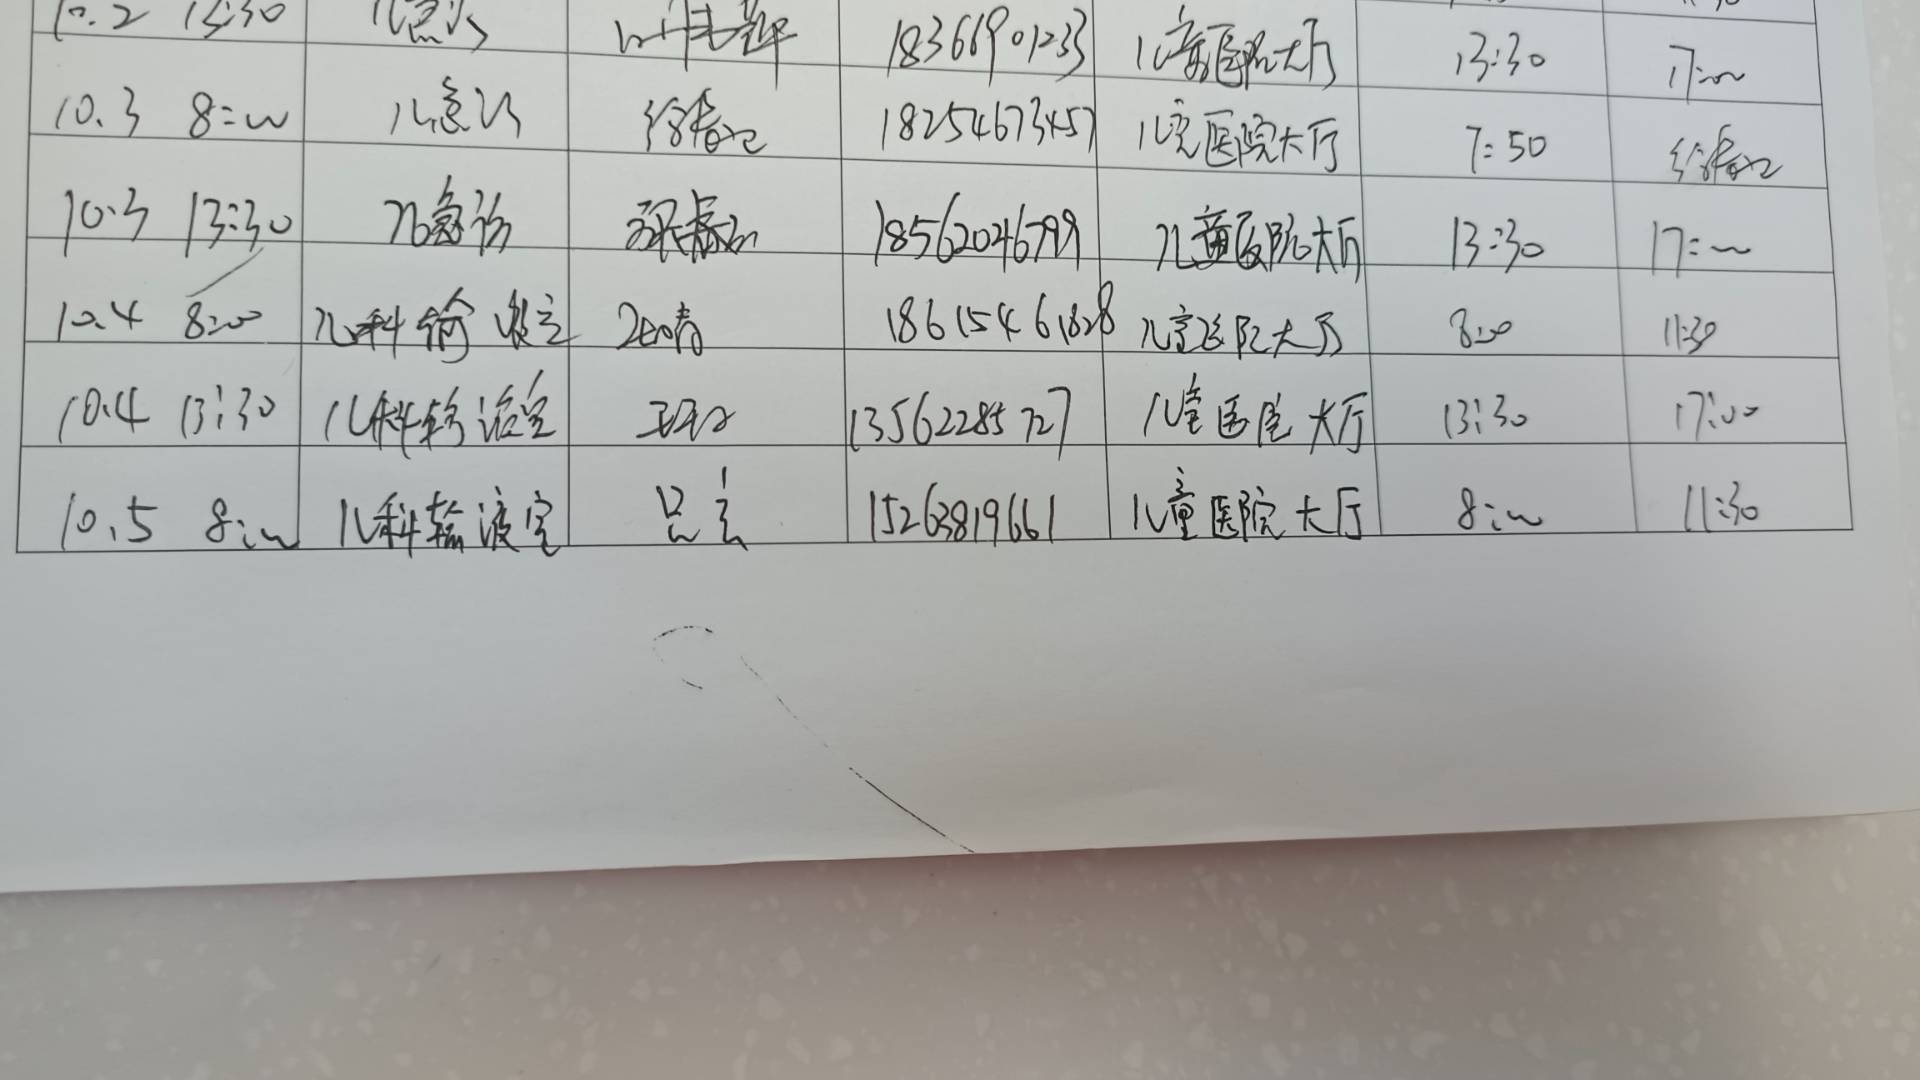 10.2 13:30 儿急诊 18366901233 儿童医院大厅 13:30 17:00
10.3 8:00 儿急诊 18254673457 儿童医院大厅 7:50
10.3 13:30 儿急诊 18562046799 儿童医院大厅 13:30 17:00
10.4 8:00 儿科输液室 18615461828 儿童医院大厅 8:00 11:30
10.4 13:30 儿科诊治室 13562285727 儿童医院大厅 13:30 17:00
10.5 8:00 儿科输液室 15263819661 儿童医院大厅 8:00 11:30